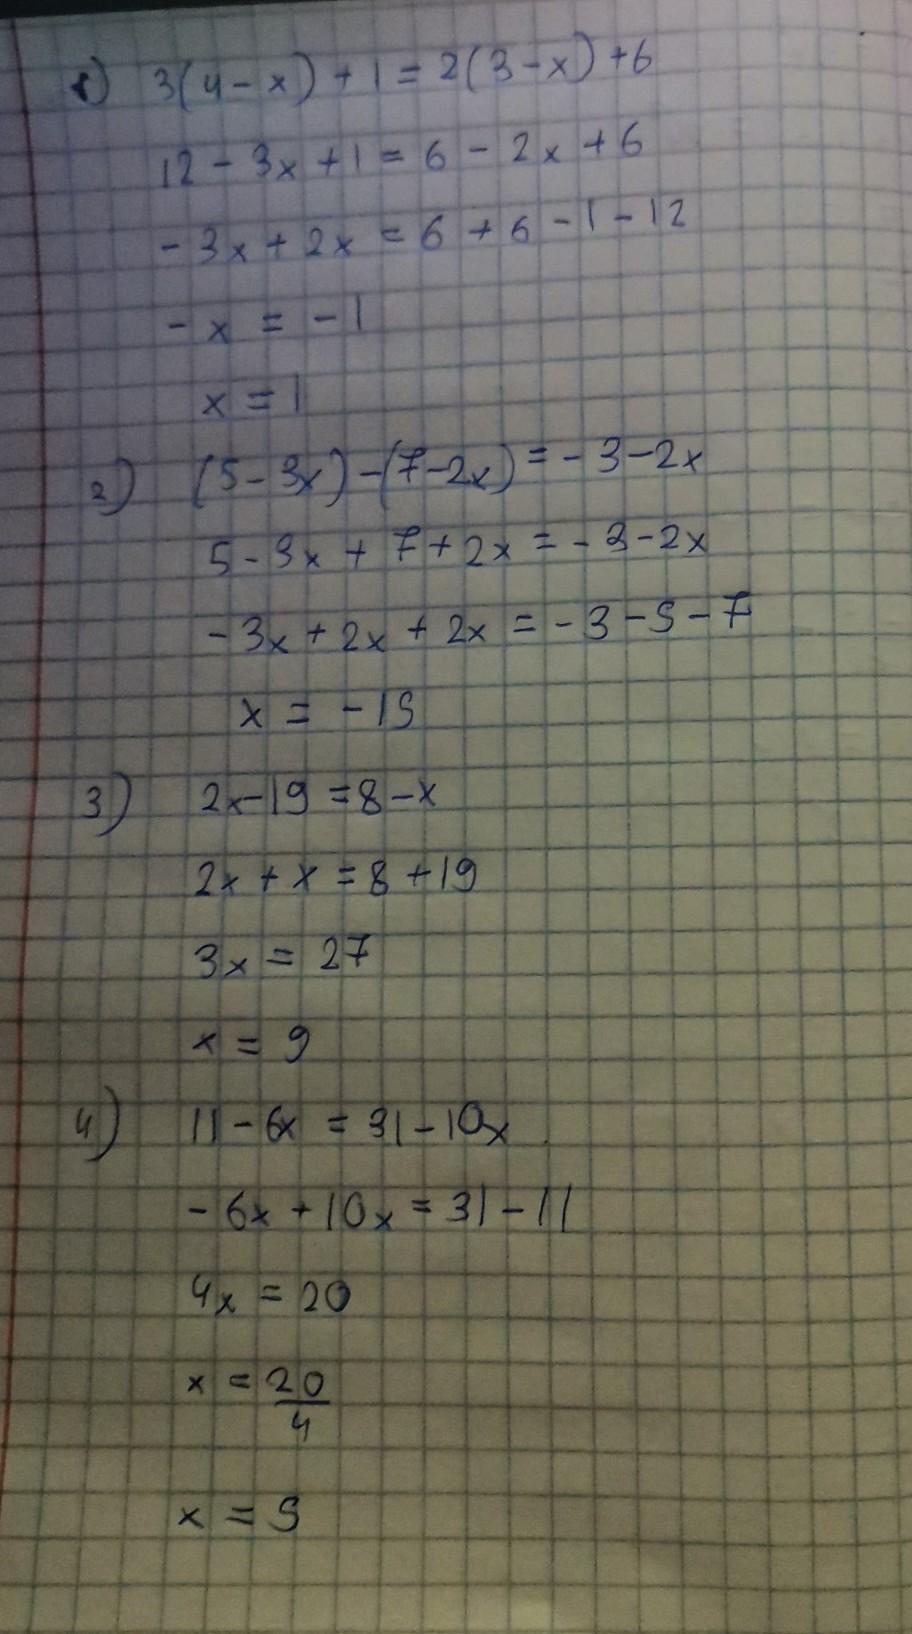 1) 3(4-x)+1=2(3-x)+6
12-3x+1=6-2x+6
-3x+2x=6+6-1-12
-x=-1
x=1
2) (5-3x)-(7-2x)=-3-2x
5-3x+7+2x=-3-2x
-3x+2x+2x=-3-5-7
x=-15
3) 2x-19=8-x
2x+x=8+19
3x=27
x=9
4) 11-6x=31-10x
-6x+10x=31-11
4x=20
x=20/4
x=5